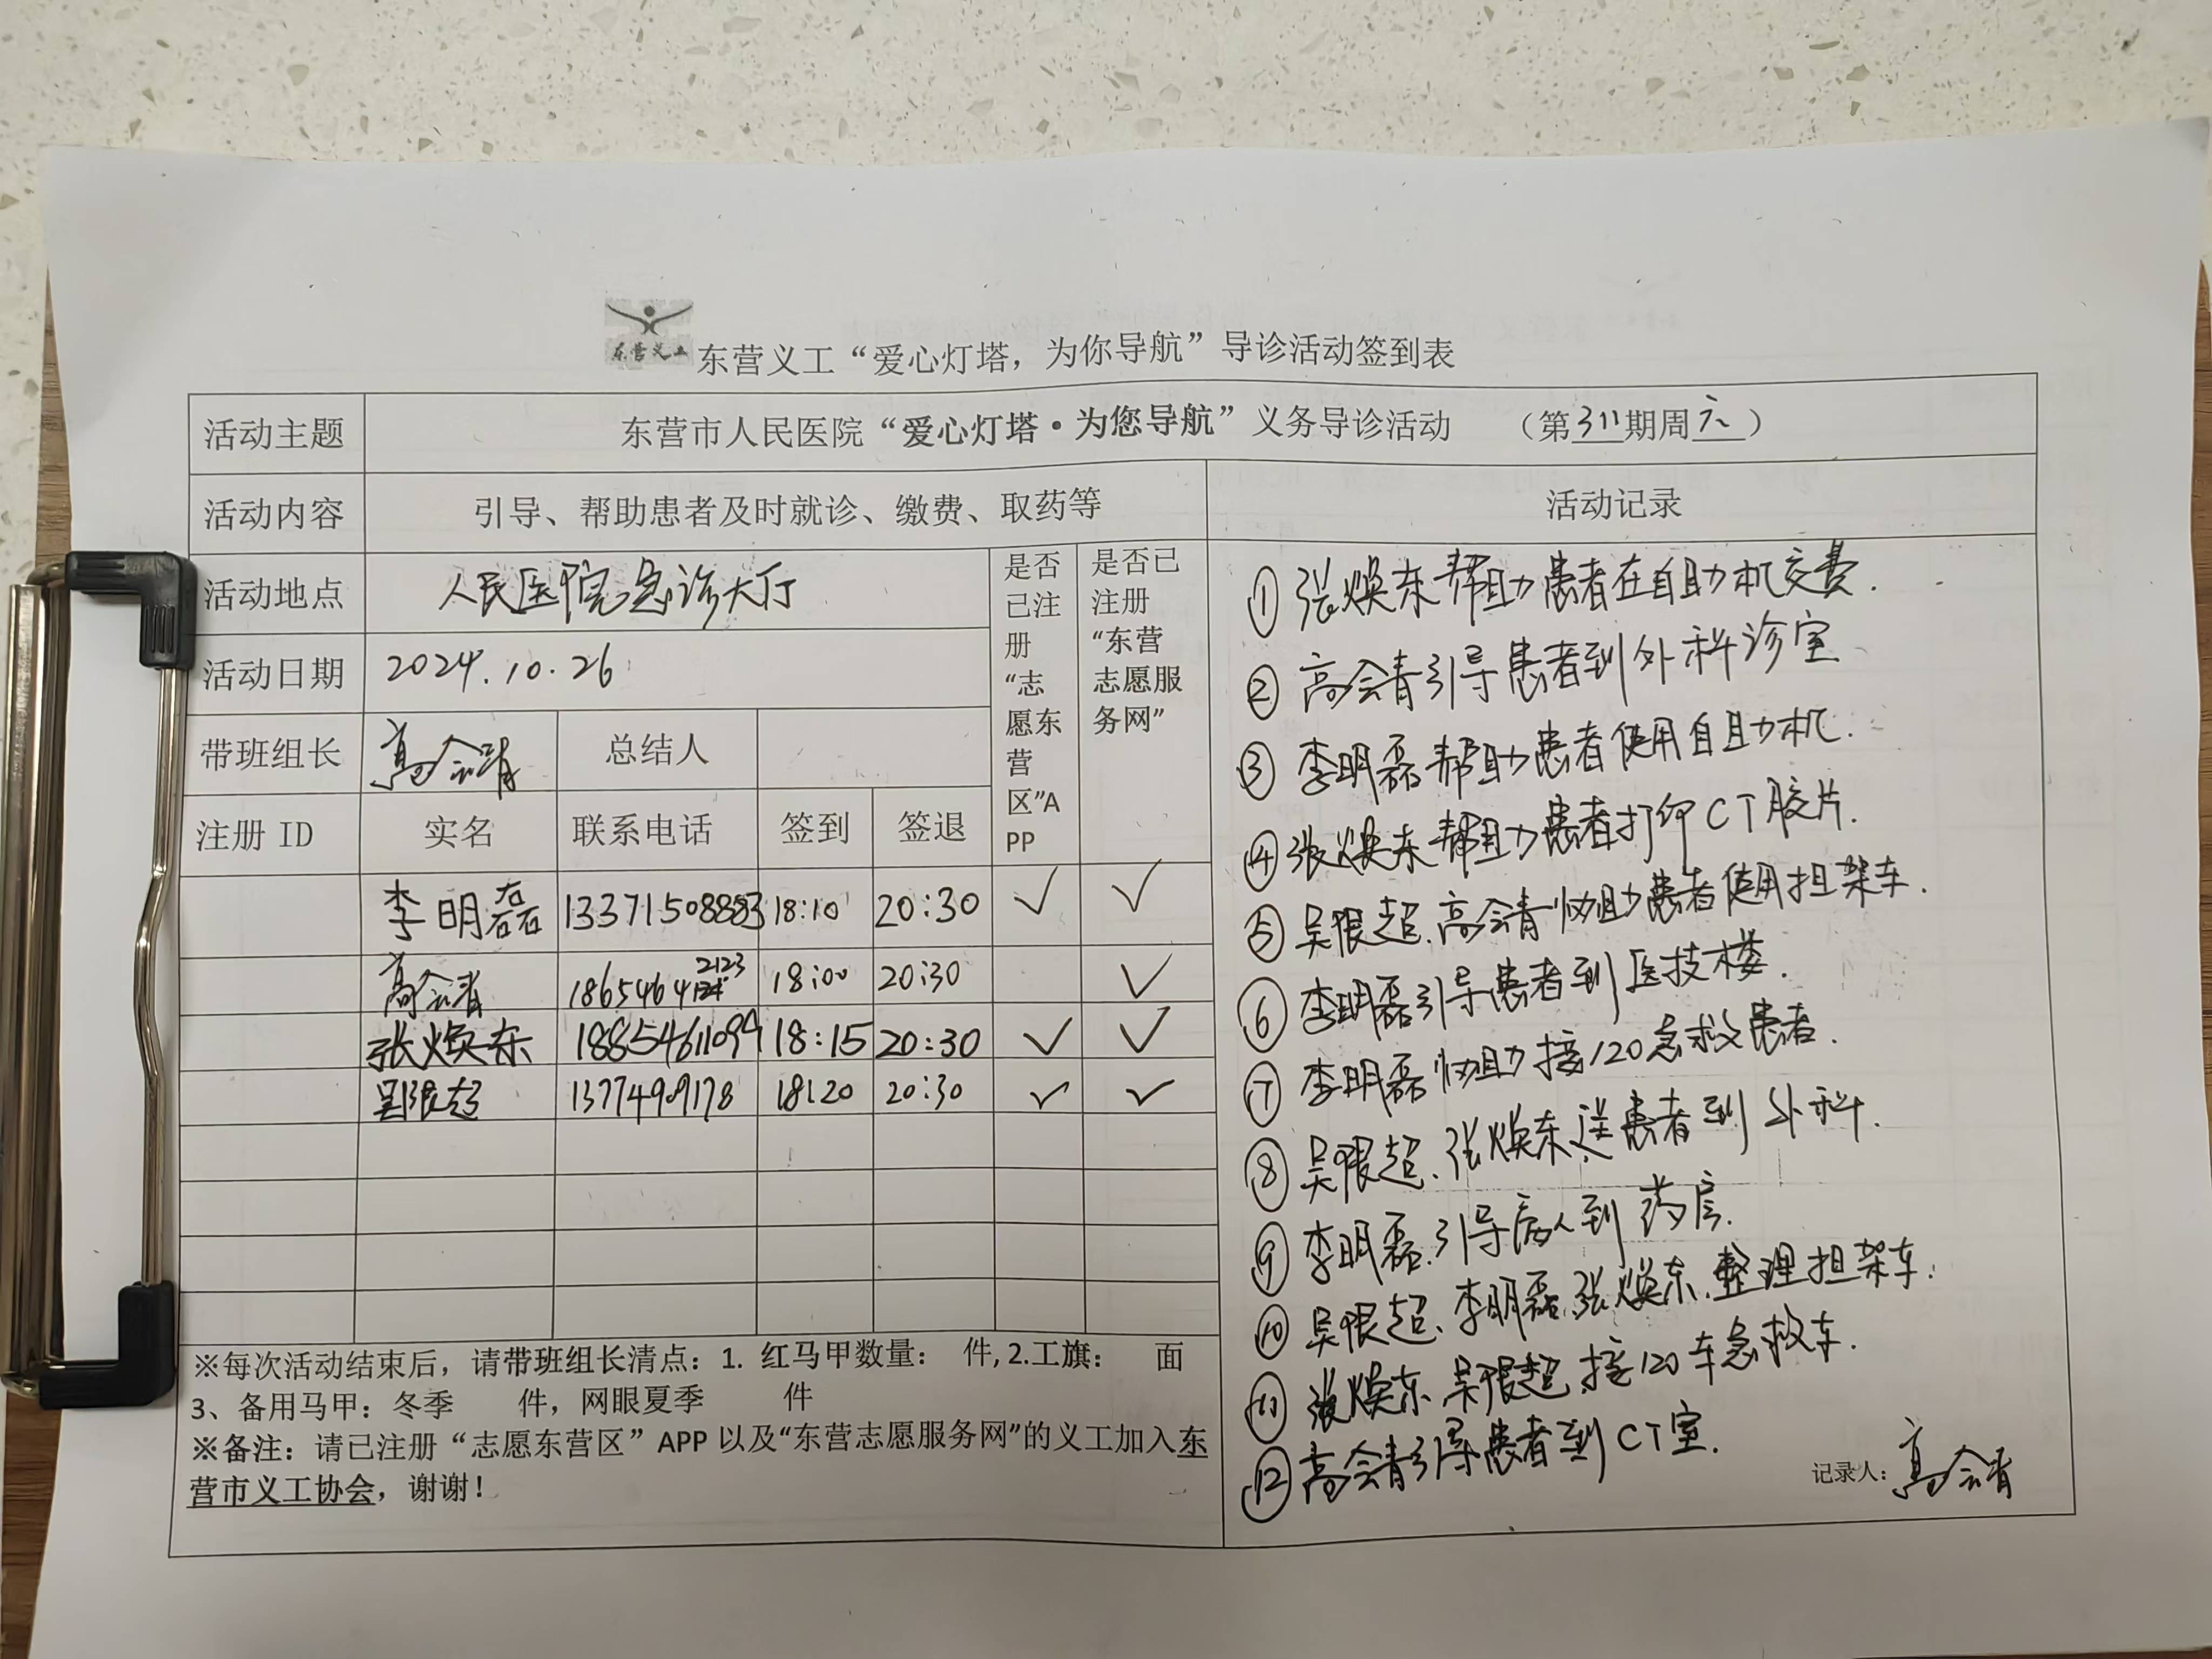 东营义工
东营义工“爱心灯塔，为你导航”导诊活动签到表
活动主题 东营市人民医院“爱心灯塔·为您导航”义务导诊活动 （第311期周六）
活动内容 引导、帮助患者及时就诊、缴费、取药等 活动记录
活动地点 人民医院急诊大厅
活动日期 2024.10.26
带班组长 高会青 总结人
注册 ID 实名 联系电话 签到 签退
是否
已注
册
“志
愿东
营
区”A
PP
是否已
注册
“东营
志愿服
务网”
李明磊 13371508883 18:10 20:30 ✓ ✓
高会青 18654642123 18:00 20:30 ✓
张焕东 18854611094 18:15 20:30 ✓ ✓
吴限超 13774909178 18:20 20:30 ✓ ✓
※每次活动结束后，请带班组长清点：1. 红马甲数量： 件, 2.工旗： 面
3、备用马甲：冬季 件，网眼夏季 件
※备注：请已注册“志愿东营区”APP 以及“东营志愿服务网”的义工加入东
营市义工协会，谢谢！
① 张焕东帮助患者在自助机交费.
② 高会青引导患者到外科诊室
③ 李明磊帮助患者使用自助机.
④ 张焕东帮助患者打印CT胶片.
⑤ 吴限超.高会青协助患者使用担架车.
⑥ 李明磊引导患者到医技楼.
⑦ 李明磊协助接120急救患者.
⑧ 吴限超.张焕东送患者到外科.
⑨ 李明磊.引导病人到药房.
⑩ 吴限超、李明磊.张焕东.整理担架车.
⑪ 张焕东.吴限超.接120车急救车.
⑫ 高会青引导患者到CT室.
记录人：高会青